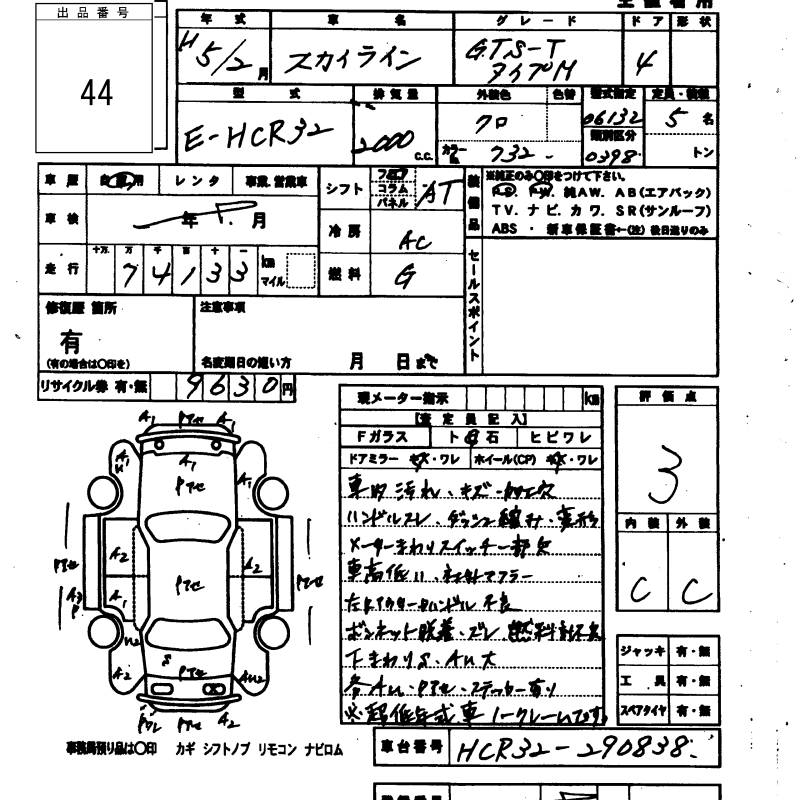 出品番号
44
年式 車名 グレード ドア 形状
H5/2月 スカイライン GTS-T タイプM 4
型式 排気量 外装色 色替 型式指定 定員・積載
E-HCR32 2000 C.C. クロ 06132 5名
カラーNo. 732 類別区分 0398 トン
車歴 自家用 レンタ 事業.営業車 シフト フロア コラム パネル AT
装備品 ※純正のみ○印をつけて下さい。
P.S. P.W. 純AW. AB(エアバック)
TV. ナビ. カワ. SR(サンルーフ)
ABS ・ 新車保証書←(注)後日送りのみ
車検 年 月 冷房 AC
走行 十万 万 千 百 十 一 km マイル
74133 燃料 G
セールスポイント
修復歴 箇所 注意事項
有
(有の場合は○印を) 名変期日の短い方 月 日まで
リサイクル券 有・無 9630円
現メーター指示 km
【査定員記入】
Fガラス ト石 ヒビワレ
ドアミラー キズ・ワレ ホイール(CP) キズ・ワレ
車内汚れ、キズ・加工穴
ハンドルスレ、ダッシュ縮み・変形
メーターまわりスイッチ一部欠
車高低い、社外マフラー
不良
ボンネット
下まわりS、AU大
各AU・PTセ・ステッカー有り
※超低年式車ノークレームです。
評価点
3
内装 外装
C C
ジャッキ 有・無
工具 有・無
スペアタイヤ 有・無
A1 PTセ A1
A1 U A1 A1
PTセ
A2 PTセ A2
PTセ PTセ
A3 P A1
U2
A2 S PTセ AU2
A2
事務局預り品は○印 カギ シフトノブ リモコン ナビロム
車台番号 HCR32-290838.